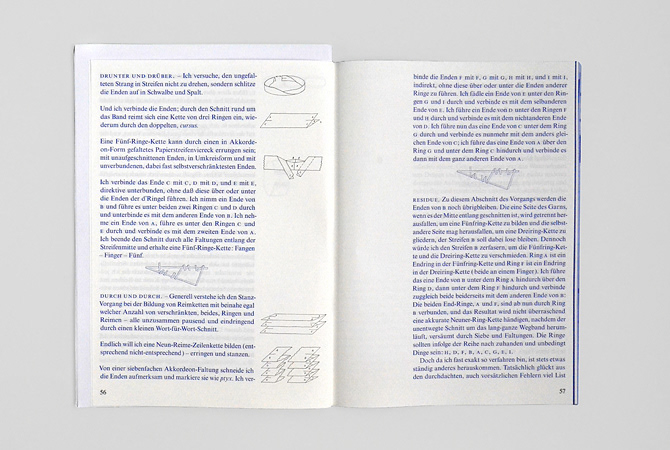 DRUNTER UND DRÜBER. – Ich versuche, den ungefal-
teten Strang in Streifen nicht zu drehen, sondern schlitze
die Enden auf in Schwalbe und Spalt.
Und ich verbinde die Enden; durch den Schnitt rund um
das Band reimt sich eine Kette von drei Ringen ein, wie-
derum durch den doppelten, cursus.
Eine Fünf-Ringe-Kette kann durch einen in Akkorde-
on-Form gefaltetes Papierstreifenviereck errungen sein;
mit unaufgeschnittenen Enden, in Umkreisform und mit
unverbundenen, dabei fast selbstverschränktesten Enden.
Ich verbinde das Ende C mit C, D mit D, und E mit E,
direktive unterbunden, ohne daß diese über oder unter
die Enden der d'Ringel führen. Ich nimm ein Ende von
B und führe es unter beiden zwei Ringen C und D durch
und unterbinde es mit dem anderen Ende von B. Ich neh-
me ein Ende von A, führe es unter den Ringen C und
E durch und verbinde es mit dem zweiten Ende von A.
Ich beende den Schnitt durch alle Faltungen entlang der
Streifenmitte und erhalte eine Fünf-Ring-Kette: Fangen
– Finger – Fünf.
DURCH UND DURCH. – Generell verstehe ich den Stanz-
Vorgang bei der Bildung von Reimketten mit beinahe egal
welcher Anzahl von verschränkten, beides, Ringen und
Reimen – alle unzusammen pausend und eindringend
durch einen kleinen Wort-für-Wort-Schnitt.
Endlich will ich eine Neun-Reime-Zeilenkette bilden (ent-
sprechend nicht-entsprechend) – erringen und stanzen.
Von einer siebenfachen Akkordeon-Faltung schneide ich
die Enden aufmerksam und markiere sie wie ptyx. Ich ver-
56
binde die Enden F mit F, G mit G, H mit H, und I mit I,
indirekt, ohne diese über oder unter die Enden anderer
Ringe zu führen. Ich fädle ein Ende von E unter den Rin-
gen G und I durch und verbinde es mit dem selbanderen
Ende von E. Ich führe ein Ende von D unter den Ringen F
und H durch und verbinde es mit dem nichtanderen Ende
von D. Ich führe nun das eine Ende von C unter dem Ring
G durch und verbinde es nunmehr mit dem anders glei-
chen Ende von C; ich führe das eine Ende von A über den
Ring G und unter dem Ring C hindurch und verbinde es
dann mit dem ganz anderen Ende von A.
RESIDUE. Zu diesem Abschnitt des Vorgangs werden die
Enden von B noch übrigbleiben. Die eine Seite des Garns,
wenn es der Mitte entlang geschnitten ist, wird getrennt her-
ausfallen, um eine Fünfring-Kette zu bilden und die selbst-
andere Seite mag herausfallen, um eine Dreiring-Kette zu
gliedern, der Streifen B soll dabei lose bleiben. Dennoch
würde ich den Streifen B zerfasern, um die Fünfring-Ket-
te und die Dreiring-Kette zu verschmieden. Ring A ist ein
Endring in der Fünfring-Kette und Ring F ist ein Endring
in der Dreiring-Kette (beide an einem Finger). Ich führe
das eine Ende von B unter dem Ring A hindurch über den
Ring D, dann unter dem Ring F hindurch und verbinde
zuggleich beide beiderseits mit dem anderen Ende von B:
Die beiden End-Ringe, A und F, sind ab nun durch Ring
B verbunden, und das Resultat wird nicht überraschend
eine akkurate Neuner-Ring-Kette händigen, nachdem der
unentwegte Schnitt um das lang-ganze Wegband herum-
läuft, versäumt durch Siebe und Faltungen. Die Ringe
sollten infolge der Reihe nach zuhanden und unbedingt
Dinge sein: H, D, F, B, A, C, G, E, I.
Doch da ich fast exakt so verfahren bin, ist stets etwas
ständig anderes herausgekommen. Tatsächlich glückt aus
den durchdachten, auch vorsätzlichen Fehlern viel List
57